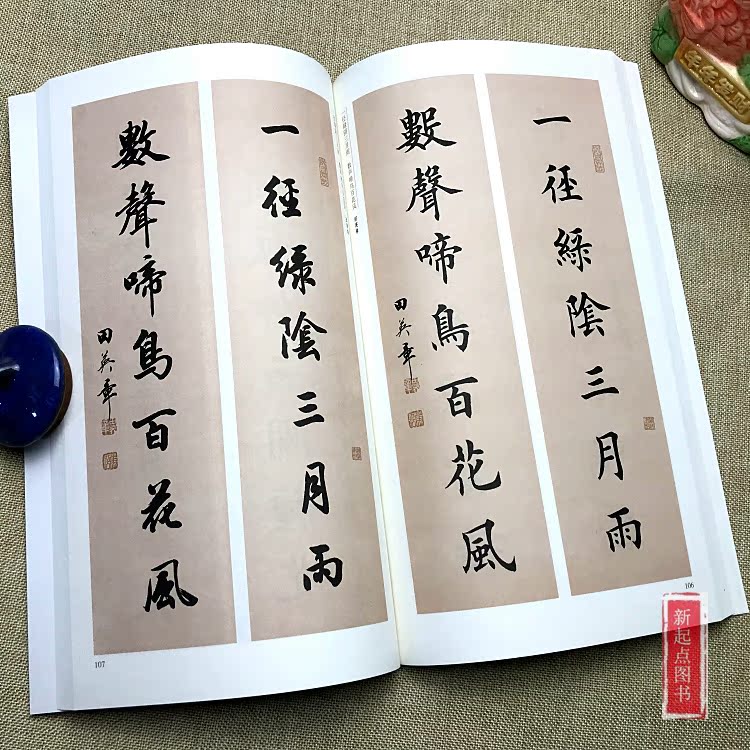 一徑綠陰三月雨
數聲啼鳥百花風
田英章
106
一徑綠陰三月雨
數聲啼鳥百花風
田英章
107
新起点图书